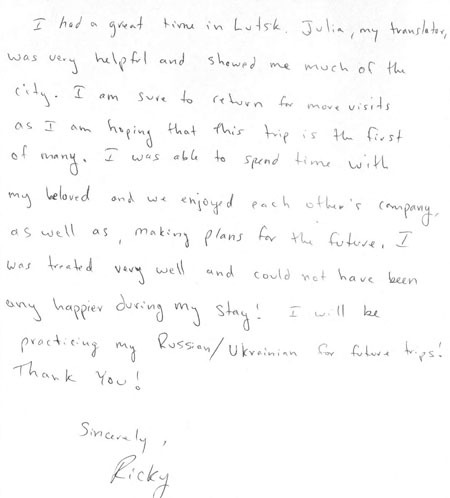 I had a great time in Lutsk. Julia, my translator,
was very helpful and showed me much of the
city. I am sure to return for more visits
as I am hoping that this trip is the first
of many. I was able to spend time with
my beloved and we enjoyed each other's company,
as well as, making plans for the future. I
was treated very well and could not have been
any happier during my stay! I will be
practicing my Russian/Ukrainian for future trips!
Thank You!
Sincerely,
Ricky